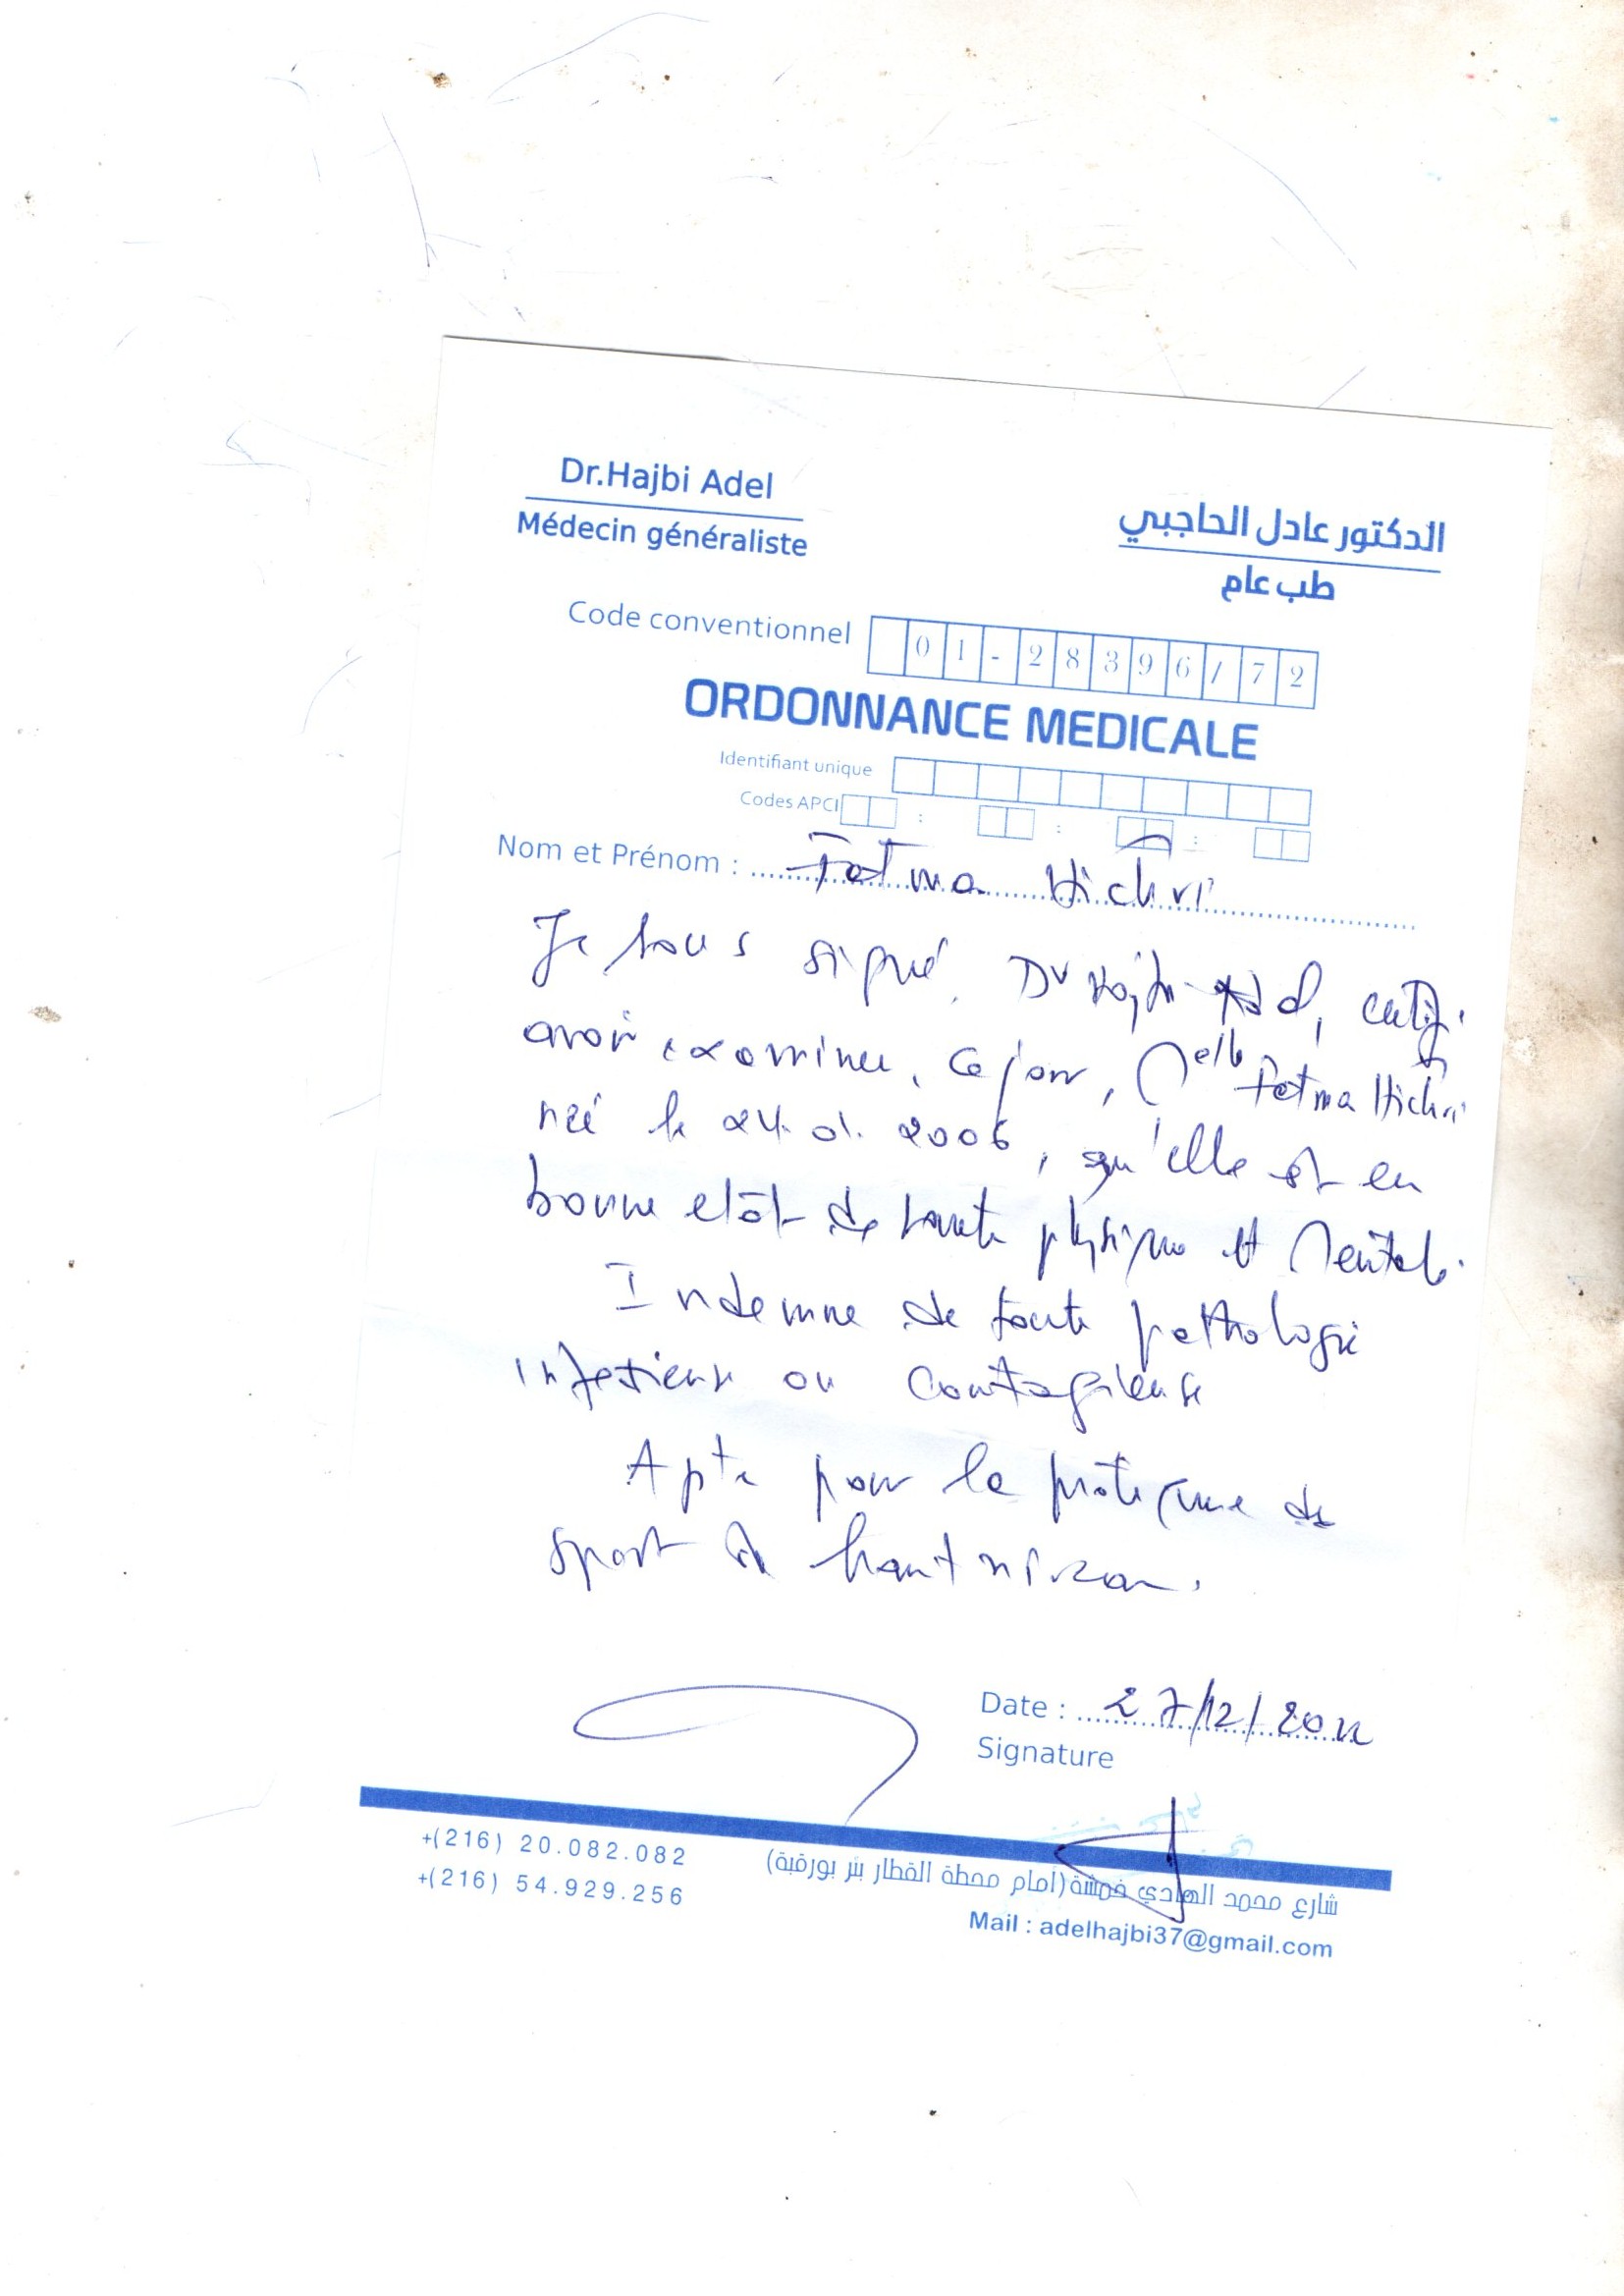 Dr.Hajbi Adel
Médecin généraliste
الدكتور عادل الحاجبي
طب عام
Code conventionnel 01-28396/72
ORDONNANCE MEDICALE
Identifiant unique
Codes APCI : : :
Nom et Prénom : Fatma Hichri
Je sous signé, Dr Hajbi Adel, certifi
avoir examinee, ce jour, Melle Fatma Hichri
née le 24. 01. 2006, qu'elle est en
bonne etat de santé physique et Mentale.
Indemne de toute pathologie
infectieuse ou contagieuse
Apte pour la pratique de
sport de haut niveau.
Date : 27/12/2022
Signature
+(216) 20.082.082
+(216) 54.929.256
شارع محمد الهادي خفشة (أمام محطة القطار بئر بورقبة)
Mail : adelhajbi37@gmail.com